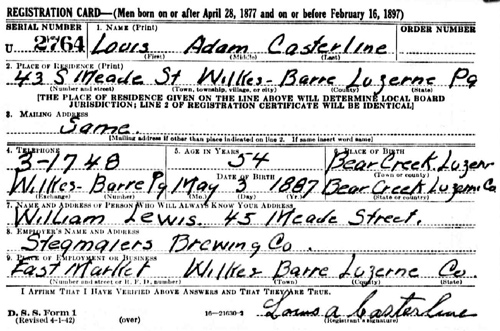 REGISTRATION CARD—(Men born on or after April 28, 1877 and on or before February 16, 1897)
SERIAL NUMBER 1. NAME (Print) ORDER NUMBER
U 2764 Louis Adam Casterline
(First) (Middle) (Last)
2. PLACE OF RESIDENCE (Print)
43 S Meade St Wilkes-Barre Luzerne Pa
(Number and street) (Town, township, village, or city) (County) (State)
[THE PLACE OF RESIDENCE GIVEN ON THE LINE ABOVE WILL DETERMINE LOCAL BOARD
JURISDICTION; LINE 2 OF REGISTRATION CERTIFICATE WILL BE IDENTICAL]
3. MAILING ADDRESS
Same.
[Mailing address if other than place indicated on line 2. If same insert word same]
4. TELEPHONE 5. AGE IN YEARS 6. PLACE OF BIRTH
3-1748 54 Bear Creek Luzern
(Town or county)
DATE OF BIRTH
Wilkes-Barre Pa May 3 1887 Bear Creek Luzerne Co
(Exchange) (Number) (Mo.) (Day) (Yr.) (State or country)
7. NAME AND ADDRESS OF PERSON WHO WILL ALWAYS KNOW YOUR ADDRESS
William Lewis. 45 Meade Street.
8. EMPLOYER'S NAME AND ADDRESS
Stegmaiers Brewing Co.
9. PLACE OF EMPLOYMENT OR BUSINESS
East Market Wilkes Barre Luzerne Co.
(Number and street or R. F. D. number) (Town) (County) (State)
I AFFIRM THAT I HAVE VERIFIED ABOVE ANSWERS AND THAT THEY ARE TRUE.
D. S. S. Form 1 16-21630-2 Louis A Casterline
(Revised 4-1-42) (over) (Registrant's signature)